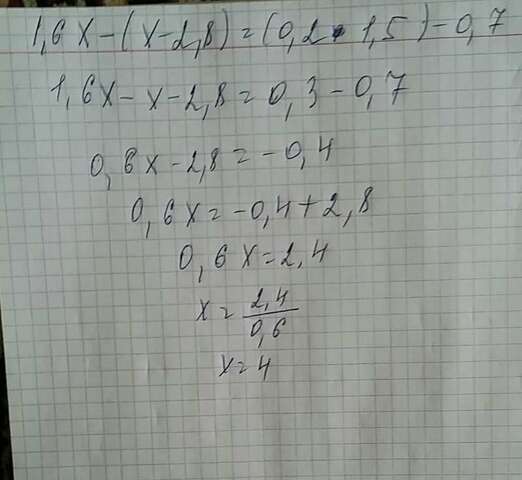 1,6x-(x-2,8)=(0,2·1,5)-0,7
1,6x-x-2,8=0,3-0,7
0,6x-2,8=-0,4
0,6x=-0,4+2,8
0,6x=2,4
x=2,4/0,6
x=4